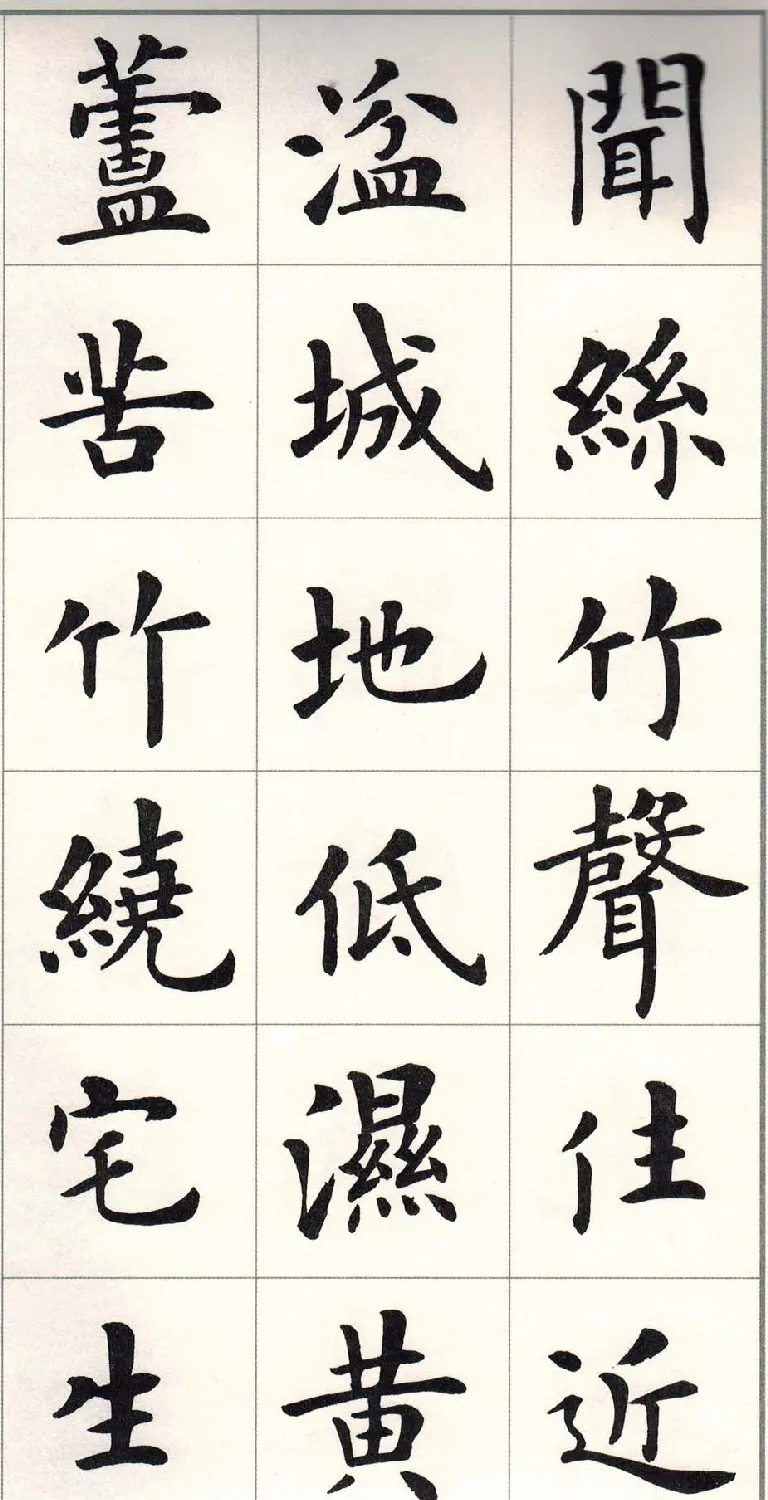 聞絲竹聲住近
湓城地低濕黄
蘆苦竹繞宅生